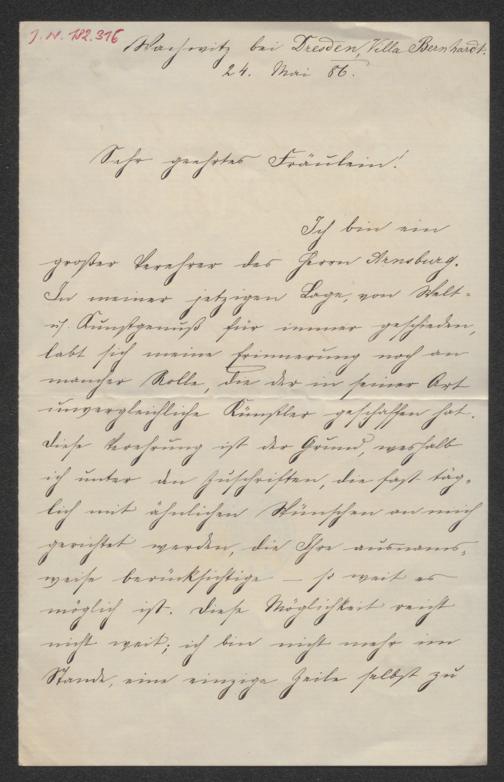 J. N. 182.316
Wachwitz bei Dresden, Villa Bernhardt.
24. Mai 86.
Sehr geehrtes Fräulein!
Ich bin ein
großer Verehrer des Herrn Arnsburg.
In meiner jetzigen Lage, von Welt-
u. Kunstgenuß für immer geschieden,
labt sich meine Erinnerung noch an
mancher Rolle, die der in seiner Art
unvergleichliche Künstler geschaffen hat.
Diese Verehrung ist der Grund, weshalb
ich unter den Zuschriften, die fast täg-
lich mit ähnlichen Wünschen an mich
gerichtet werden, die Ihre ausnams-
weise berücksichtige – so weit es
möglich ist. Diese Möglichkeit reicht
nicht weit; ich bin nicht mehr im
Stande, eine einzige Zeile selbst zu